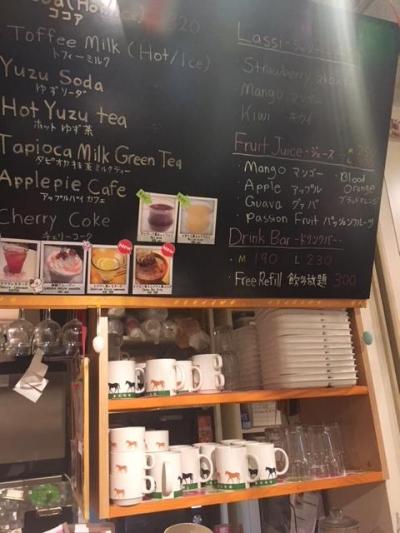 ココア
Toffee Milk (Hot/Ice)
トフィーミルク
Yuzu Soda
ゆずソーダ
Hot Yuzu tea
ホットゆず茶
Tapioca Milk Green Tea
タピオカ抹茶ミルクティー
Applepie Cafe
アップルパイカフェ
Cherry Coke
チェリーコーク
Lassi
Strawberry
Mango マンゴー
Kiwi キウイ
Fruit Juice・ジュース
・Mango マンゴー
・Blood Orange
ブラッドオレンジ
・Apple アップル
・Guava グァバ
・Passion Fruit パッションフルーツ
Drink Bar・ドリンクバー・
M 190 L 230
Free Refill 飲み放題 300